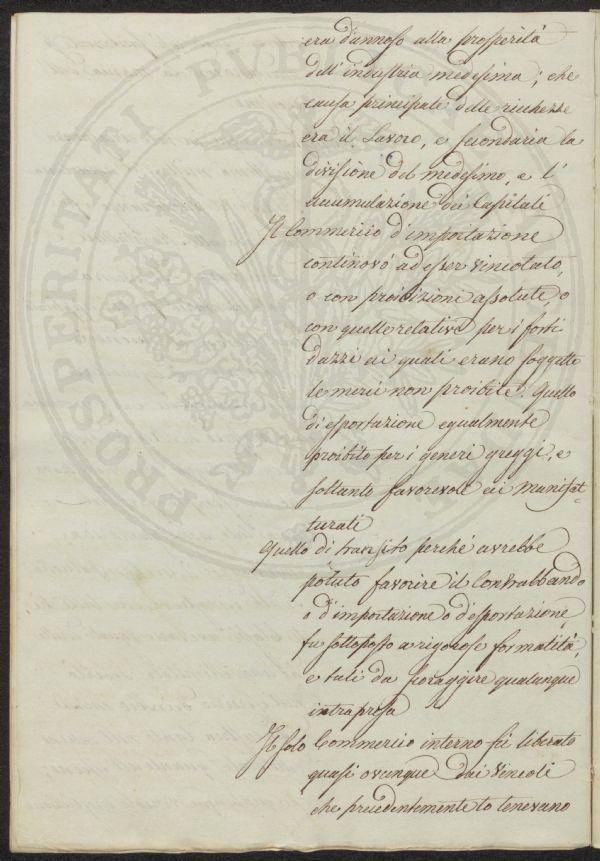 era dannoso alla prosperità
dell'industria medesima; che
causa principale delle ricchezze
era il Lavoro, e secondaria la
divisione del medesimo, e l'
accumulazione dei Capitali
Il Commercio d'importazione
continovò ad esser vincolato,
o con proibizioni assolute, o
con quelle relative per i forti
dazzi ai quali erano soggette
le merci non proibite. Quello
di esportazione egualmente
proibito per i generi greggi, e
soltanto favorevole ai Munifat-
turati
Quello di transito perché avrebbe
potuto favorire il Contrabbando
o d'importazione o d'esportazione,
fu sottoposto a rigorose formalità,
e tali da scoraggire qualunque
intrapresa
Il solo Commercio interno fù liberato
quasi ovunque dai vincoli
che precedentemente lo tenevano
PROSPERITATI PUBLICAE